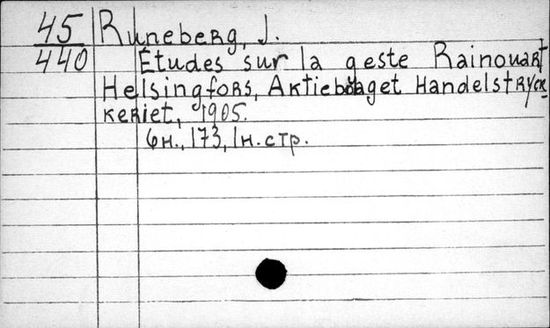 45 Runeberg, J.
440 Études sur la geste Rainouart
Helsingfors, Aktiebolaget Handelstryck
keriet, 1905.
6н., 173, 1н. стр.